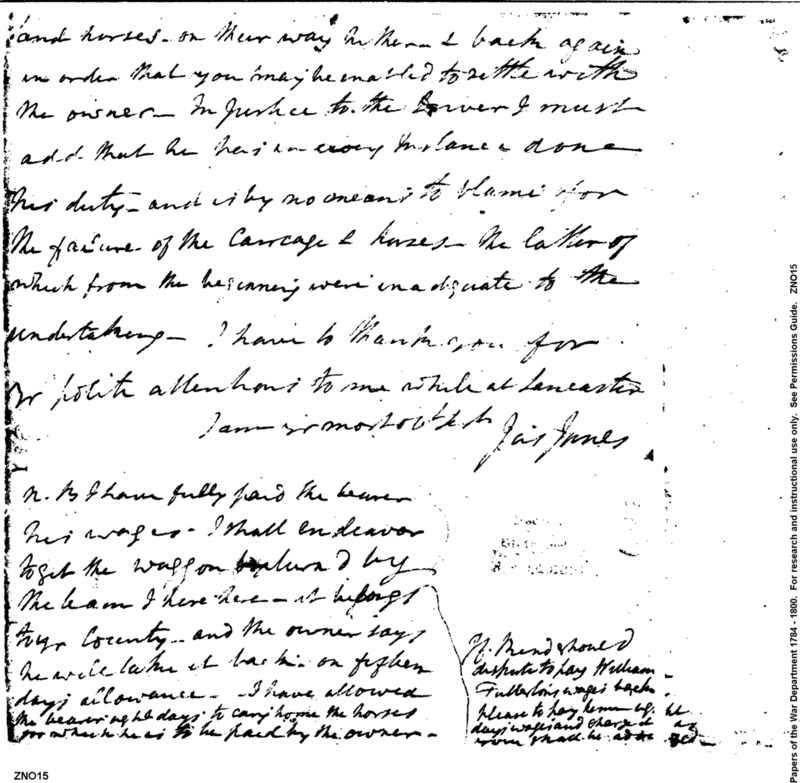 and horses - on their way hither - & back again
in order that you may be enabled to settle with
the owner - In Justice to the Driver I must
add that he has in every Instance done
his duty - and is by no means to blame for
the failure of the Carriage & horses - the latter of
which from the beginning were inadequate to the
undertaking - I have to thank you for
yr polite attentions to me while at Lancaster
I am yr most obt St
Jas Jones
N. B I have fully paid the bearer
his wages - I shall endeavor
to get the waggon by
the team I here - it belongs
to yr County - and the owner says
he will take it back - on fifteen
days allowance - I have allowed
the bearer eight days to carry home the horses
for which he is to be paid by the owner -
If should
dispute to pay William
Fullerton's wages back
please to pay him
days wages and charge it
shall be
ZNO15
Papers of the War Department 1784 - 1800. For research and instructional use only. See Permissions Guide. ZNO15